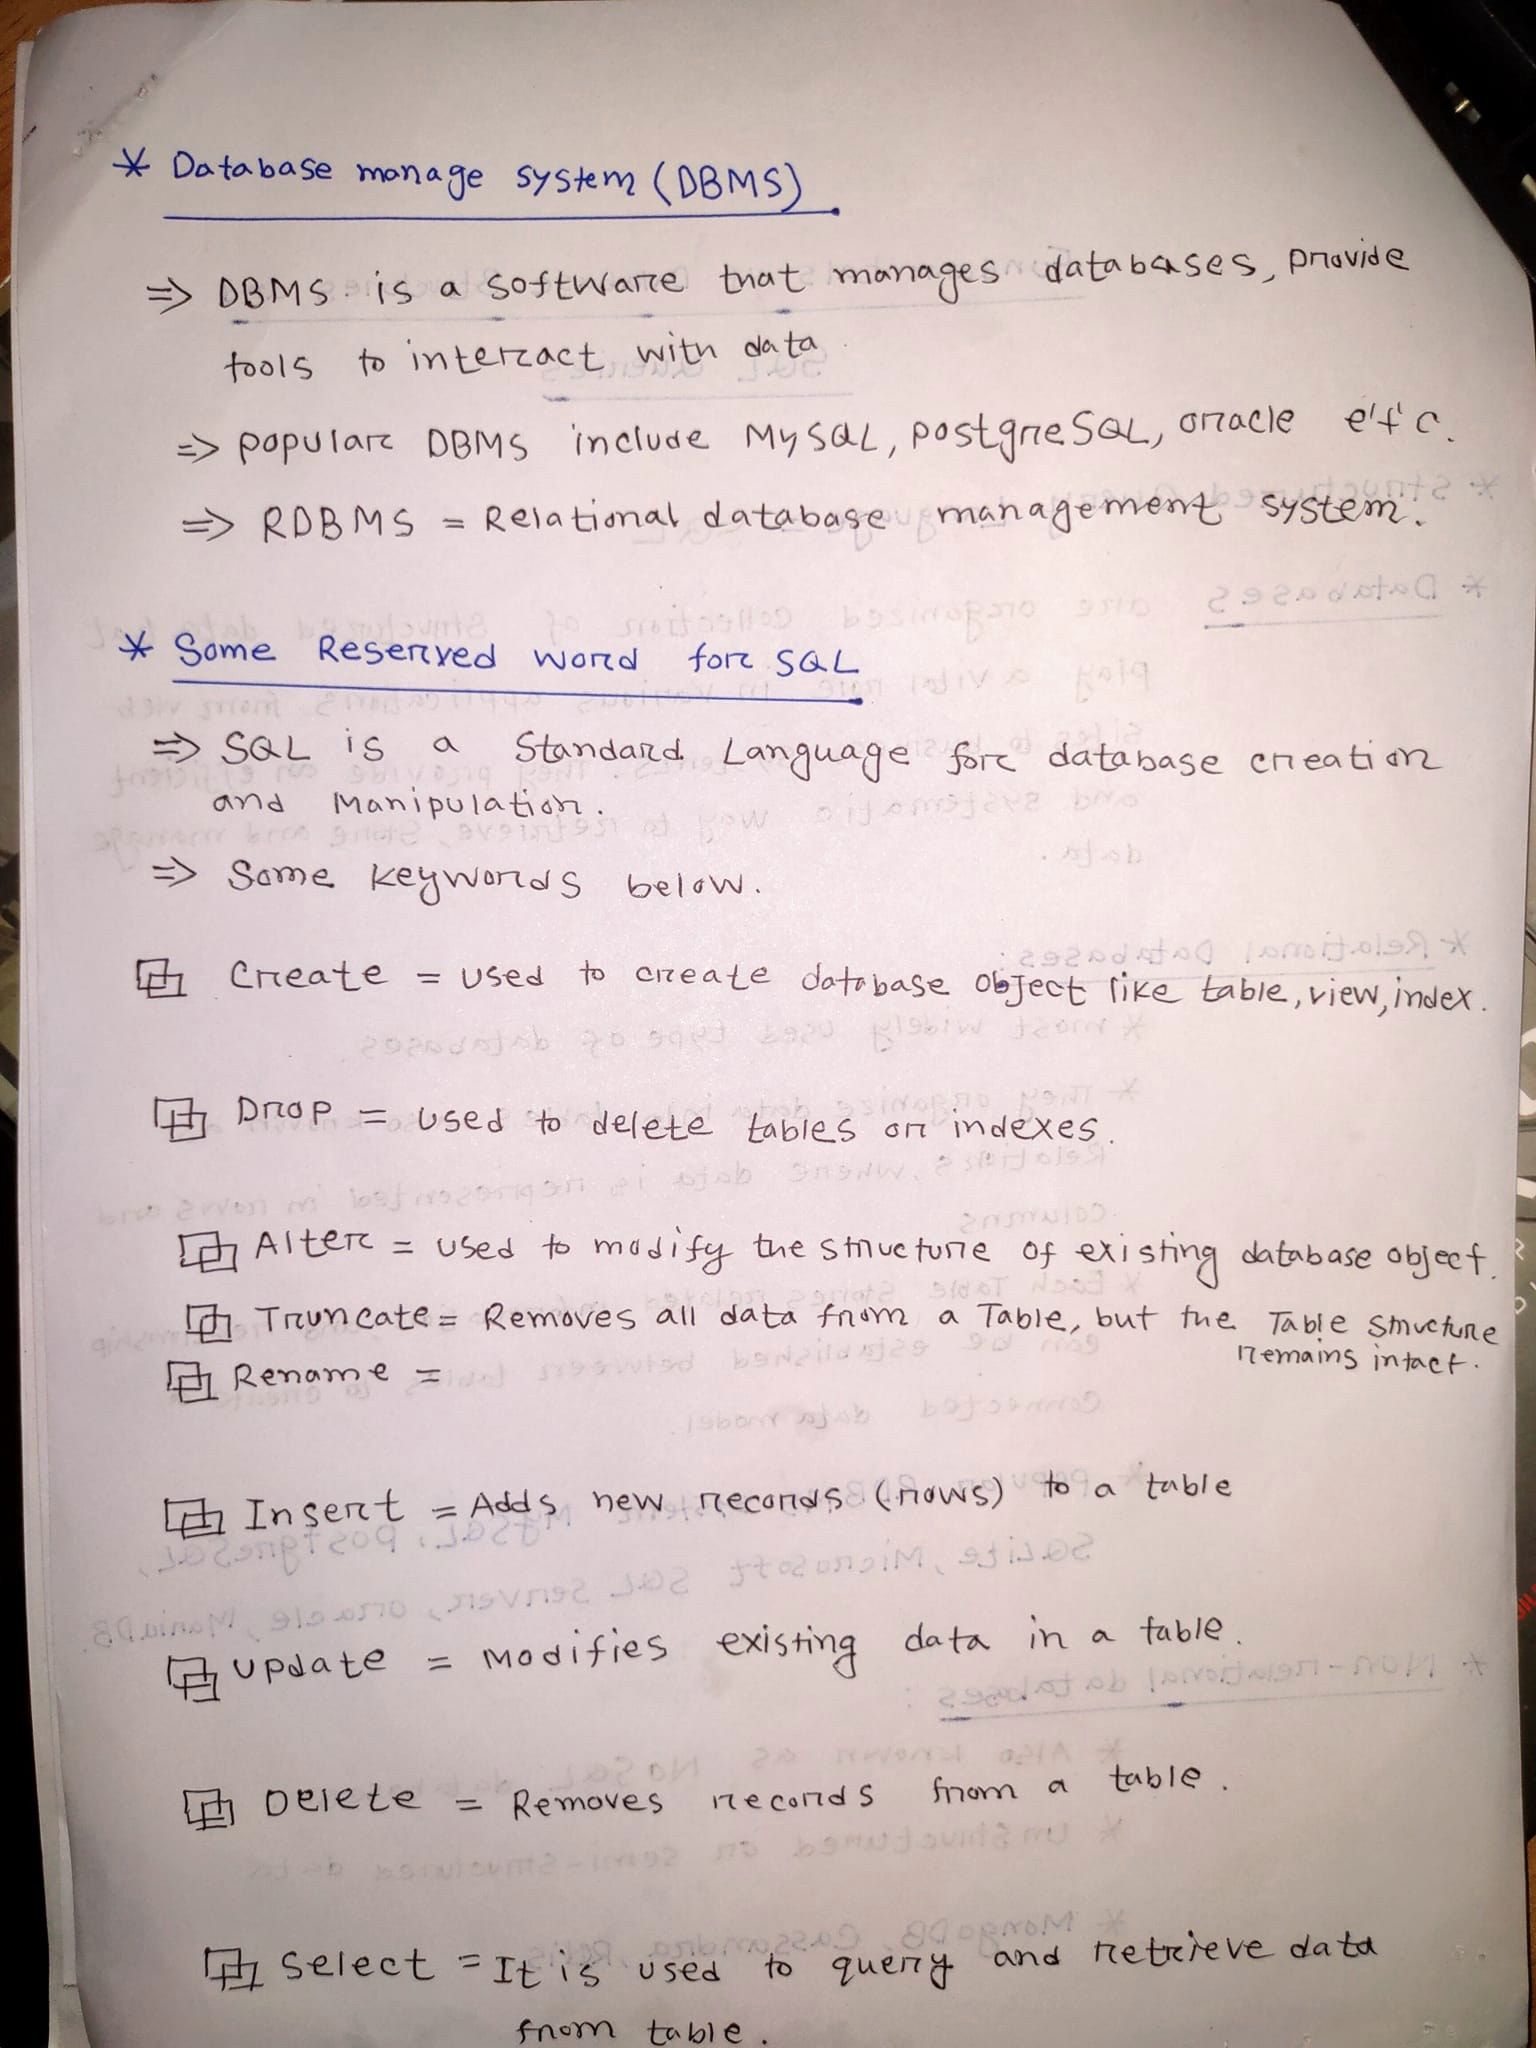 * Database manage system (DBMS)
=> DBMS is a software that manages databases, provide
tools to interact with data
=> popular DBMS include MySQL, postgreSQL, oracle e't'c.
=> RDBMS = Relational database management system.
* Some Reserved word for SQL
=> SQL is a Standard Language for database creation
and Manipulation.
=> Some keywords below.
Create = used to create database object like table, view, index.
Drop = used to delete tables or indexes.
Alter = used to modify the structure of existing database object.
Truncate = Removes all data from a Table, but the Table structure
remains intact.
Rename =
Insert = Adds new records (rows) to a table
update = Modifies existing data in a table.
Delete = Removes records from a table.
Select = It is used to query and retrieve data
from table.